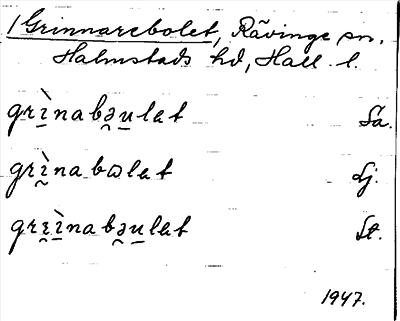 /Grinnarebolet, Rävinge sn.
Halmstads hd, Hall. l.
grı̱̀nabə̯u̱lət Sa.
grı̰̀nabɷlət Lj.
grɛ̯ı̱̀nabə̯u̱lət St.
1947.